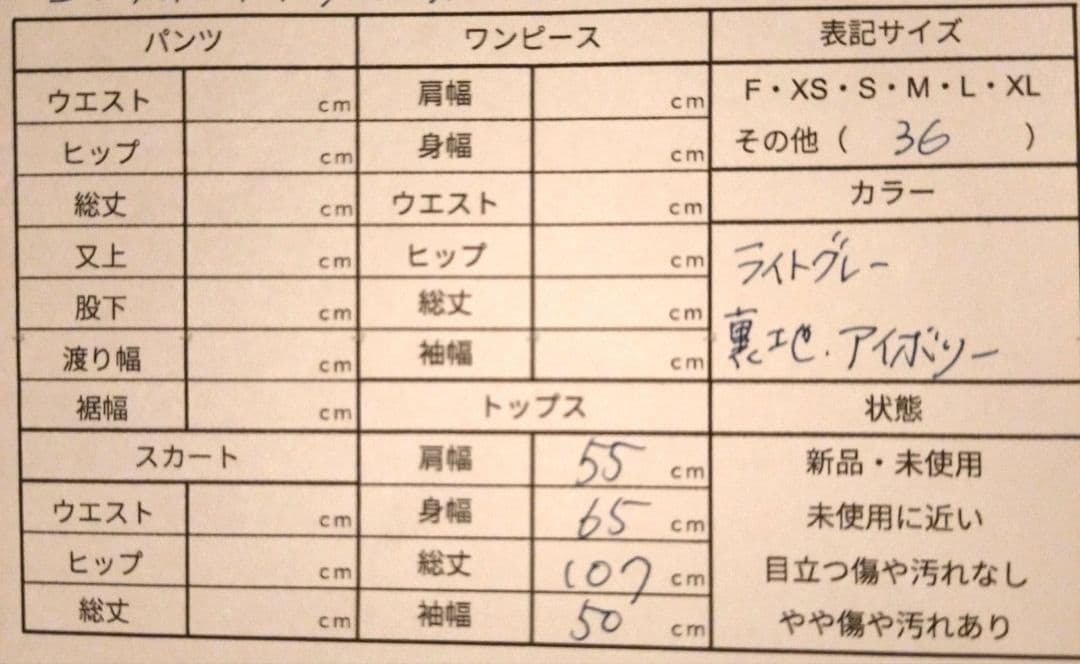 パンツ
ウエスト cm
ヒップ cm
総丈 cm
又上 cm
股下 cm
渡り幅 cm
裾幅 cm
スカート
ウエスト cm
ヒップ cm
総丈 cm
ワンピース
肩幅 cm
身幅 cm
ウエスト cm
ヒップ cm
総丈 cm
袖幅 cm
トップス
肩幅 55 cm
身幅 65 cm
総丈 107 cm
袖幅 50 cm
表記サイズ
F・XS・S・M・L・XL
その他( 36 )
カラー
ライトグレー
裏地.アイボリー
状態
新品・未使用
未使用に近い
目立つ傷や汚れなし
やや傷や汚れあり